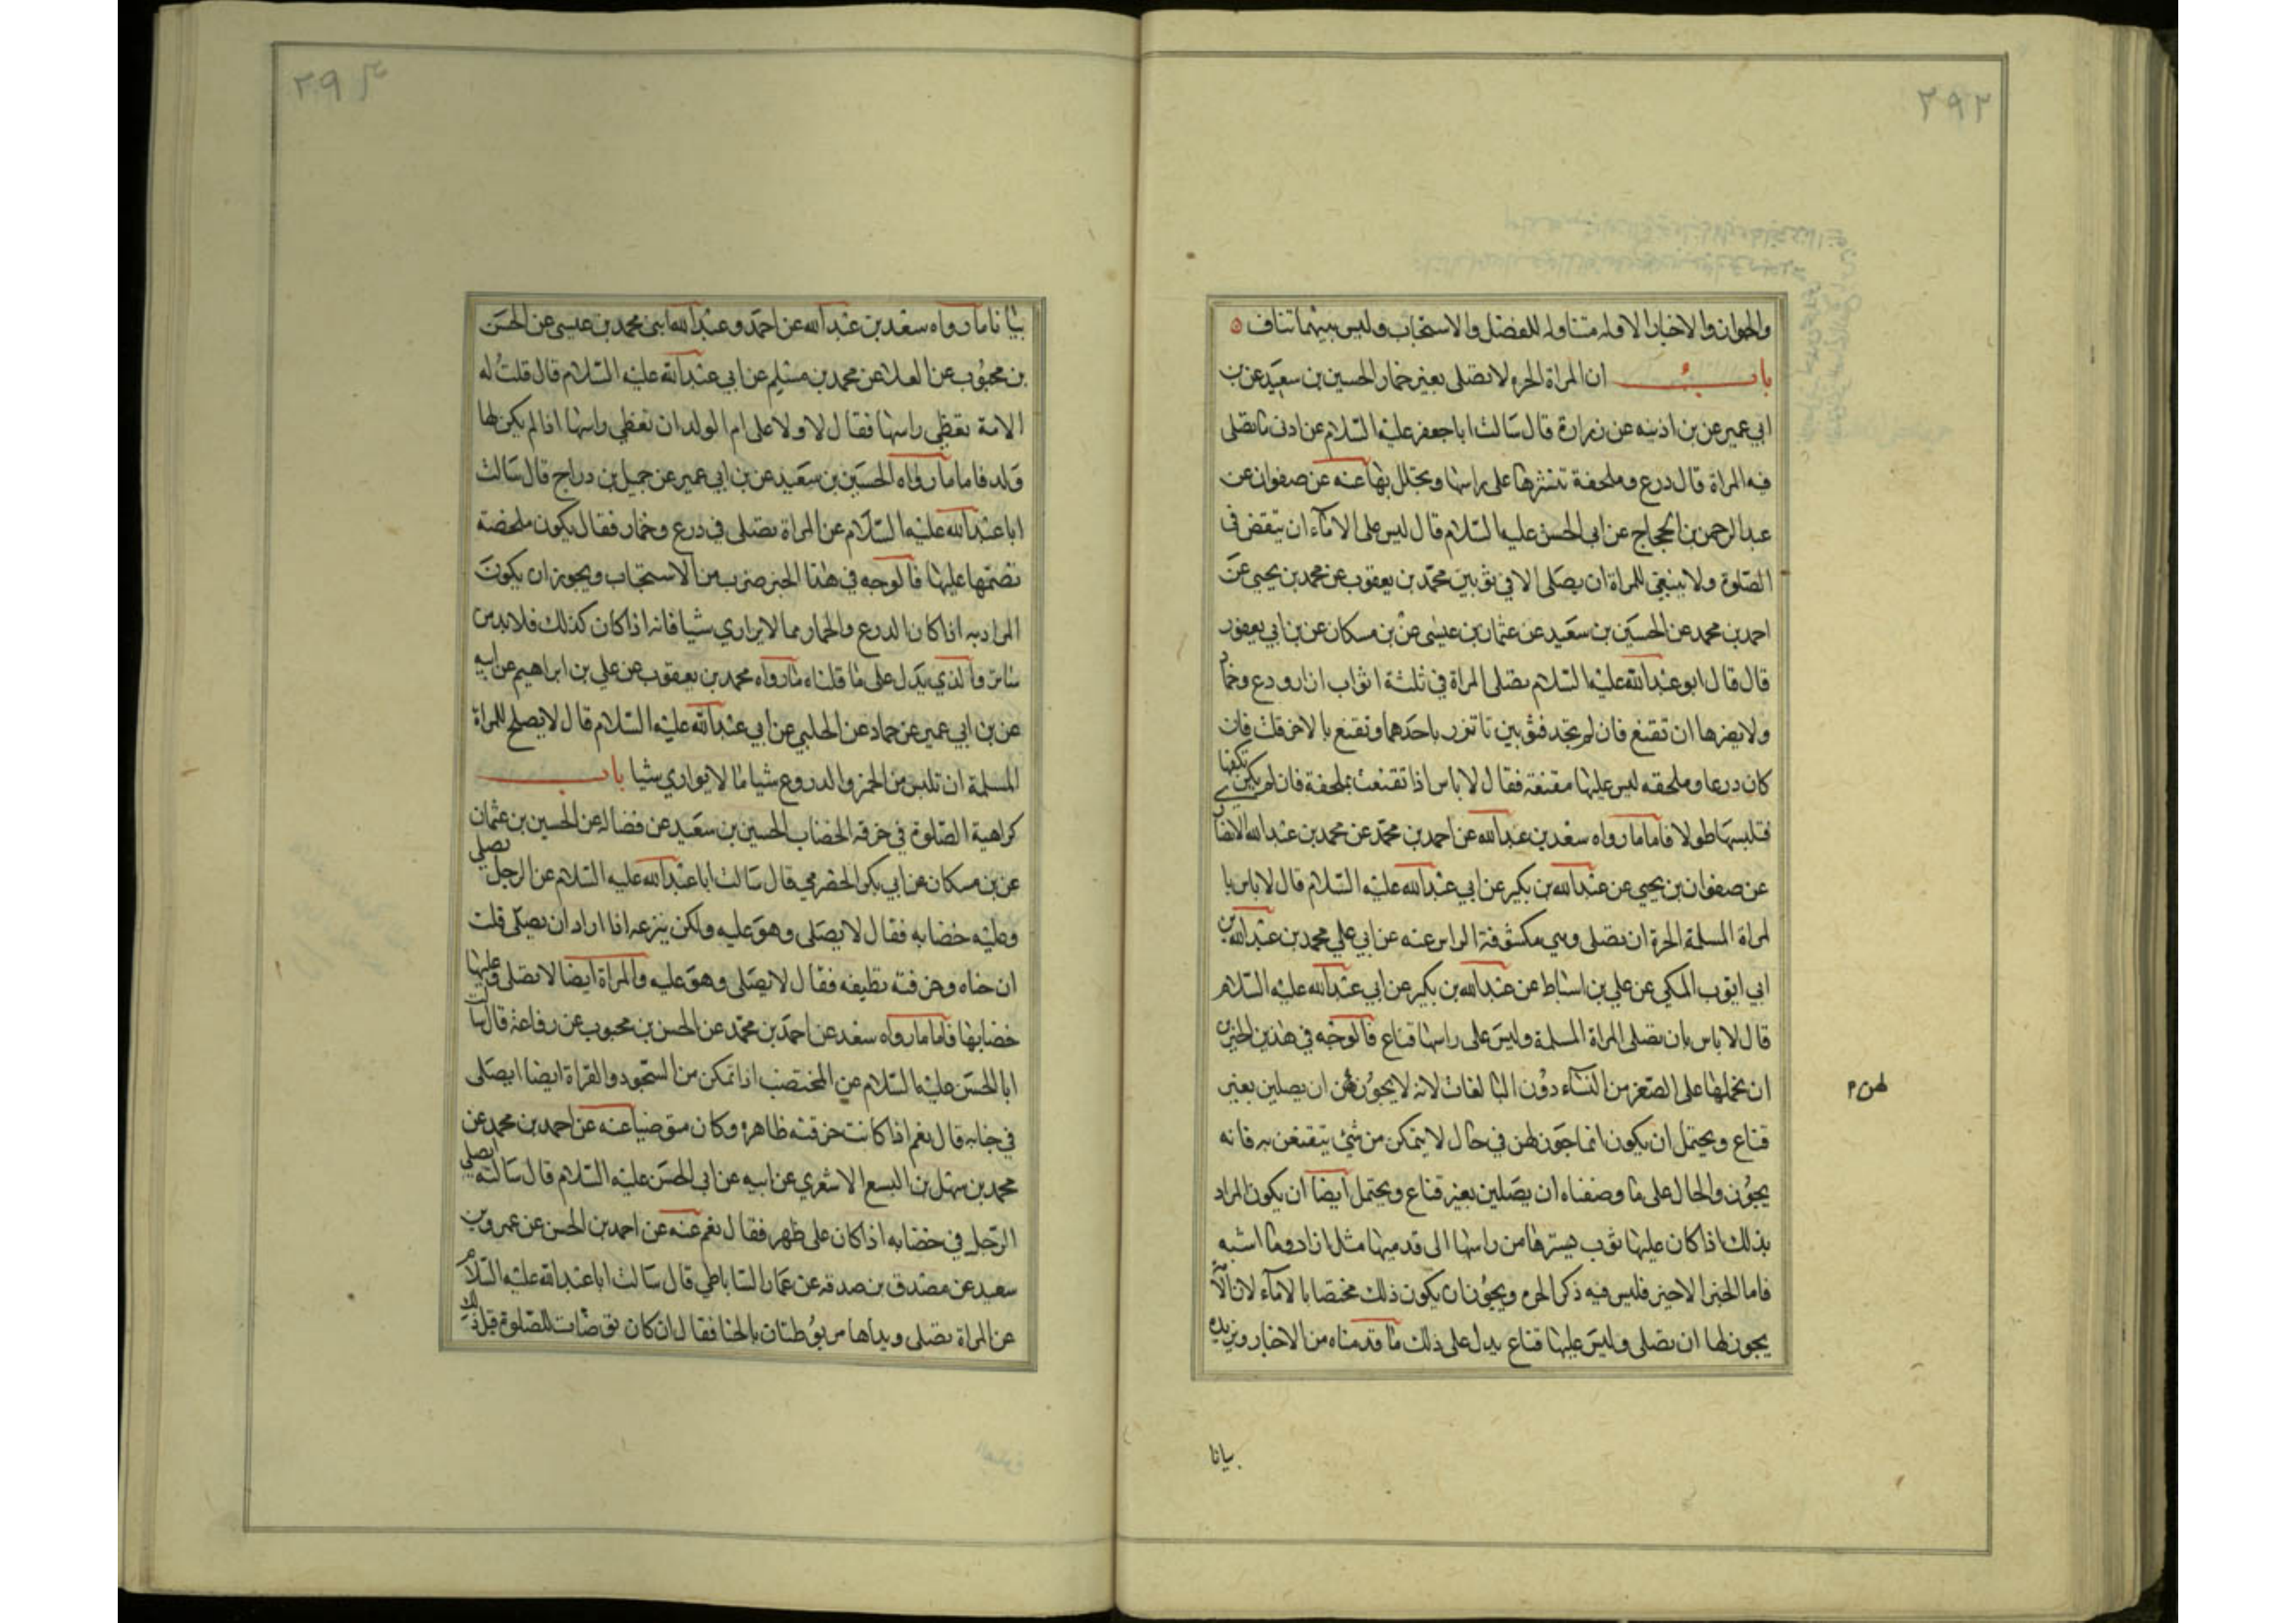 ٢٩٢
والجواز والاخبار الاوله متناوله للفضل والاستحباب وليس بينهما تناف
باب ان المراة الحره لا تصلى بغير خمار الحسين بن سعيد عن بن
ابي عمير عن بن اذينه عن زرارة قال سالت ابا جعفر عليه السلام عن ادنى ما تصلى
فيه المراة قال درع وملحفة تنشرها على راسها وتجلل بها عنه عن صفوان عن
عبد الرحمن بن الحجاج عن ابى الحسن عليه السلام قال ليس على الاماء ان يتقنعن فى
الصلوة ولا ينبغى للمراة ان يصلى الا في ثوبين محمد بن يعقوب عن محمد بن يحيى عن
احمد بن محمد عن الحسين بن سعيد عن عثمان بن عيسى عن بن مسكان عن بن ابي يعفور
قال قال ابو عبد الله عليه السلام تصلى المراة في ثلثة اثواب ازار ودرع وخمار
ولا يضرها ان تقنع فان لم تجد فثوبين تاتزر باحدهما وتقنع بالاخر قلت فان
كان درعا وملحفه ليس عليها مقنعة فقال لا باس اذا تقنعت بملحفة فان لم يكن تكفها
فتلبسها طولا فاما ما رواه سعد بن عبد الله عن احمد بن محمد عن محمد بن عبد الله الانصار
عن صفوان بن يحيى عن عبد الله بن بكير عن ابي عبد الله عليه السلام قال لا باس با
لمراة المسلمة الحرة ان تصلى وهى مكشوفة الراس عنه عن ابي علي محمد بن عبد الله بن
ابي ايوب المكي عن علي بن اسباط عن عبد الله بن بكير عن ابي عبد الله عليه السلام
قال لا باس بان تصلى المراة المسلمة وليس على راسها قناع فالوجه في هذين الخبرين
ان نحملها على الصغر من النساء دون البالغات لانه لا يجوز لهن ان يصلين بغير
لهن م
قناع ويحتمل ان يكون انما جوز لهن في حال لا يتمكن من شئ يتقنعن به فانه
يجوز والحال على ما وصفناه ان يصلين بغير قناع ويحتمل ايضا ان يكون المراد
بذلك اذا كان عليها ثوب يسترها من راسها الى قدميها مثل ازار وما اشبه
فاما الخبر الاخير فليس فيه ذكر الحره ويجوز ان يكون ذلك مختصا بالاماء لان الا
يجوز لها ان تصلى وليس عليها قناع يدل على ذلك ما قدمناه من الاخبار ويزيده
بيانا
٢٩٣
بيانا ما رواه سعد بن عبد الله عن احمد وعبد الله ابنى محمد بن عيسى عن الحسن
بن محبوب عن العلا عن محمد بن مسلم عن ابي عبد الله عليه السلام قال قلت له
الامة تغطي راسها فقال لا ولا على ام الولد ان تغطي راسها اذا لم يكن لها
ولد فاما ما رواه الحسين بن سعيد عن بن ابي عمير عن جميل بن دراج قال سالت
ابا عبد الله عليه السلام عن المراة تصلى في درع وخمار فقال يكون ملحفة
تضمها عليها فالوجه في هذا الخبر ضرب من الاستحباب ويجوز ان يكون
المراد به اذا كان الدرع والخمار مما لا يواري شيا فانه اذا كان كذلك فلا بد من
ساتر والذي يدل على ما قلناه ما رواه محمد بن يعقوب عن علي بن ابراهيم عن ابيه
عن بن ابي عمير عن حماد عن الحلبي عن ابي عبد الله عليه السلام قال لا يصلح للمراة
المسلمة ان تلبس من الخمر والدروع شيا ما لا يواري شيا باب
كراهية الصلوة في خرقة الخضاب الحسين بن سعيد عن فضاله عن الحسين بن عثمان
عن بن مسكان عن ابي بكر الحضرمي قال سالت ابا عبد الله عليه السلام عن الرجل يصلى
وعليه خضابه فقال لا يصلى وهو عليه ولكن ينزعه اذا اراد ان يصلى قلت
ان حناه وخرقته نظيفه فقال لا يصلى وهو عليه والمراة ايضا لا تصلى وعليها
خضابها فاما ما رواه سعد عن احمد بن محمد عن الحسن بن محبوب عن رفاعة قال سالت
ابا الحسن عليه السلام عن المختضب اذا تمكن من السجود والقراة ايضا ايصلى
في حنابه قال نعم اذا كانت خرقته طاهره وكان متوضيا عنه عن احمد بن محمد عن
محمد بن سهل بن اليسع الاشعري عن ابيه عن ابى الحسن عليه السلام قال سالته ايصلى
الرجل في خضابه اذا كان على طهر فقال نعم عنه عن احمد بن الحسن عن عمرو بن
سعيد عن مصدق بن صدقه عن عمار الساباطي قال سالت ابا عبد الله عليه السلام
عن المراة تصلى ويداها مربوطتان بالحنا فقال ان كان توضات للصلوة قبل ذلك